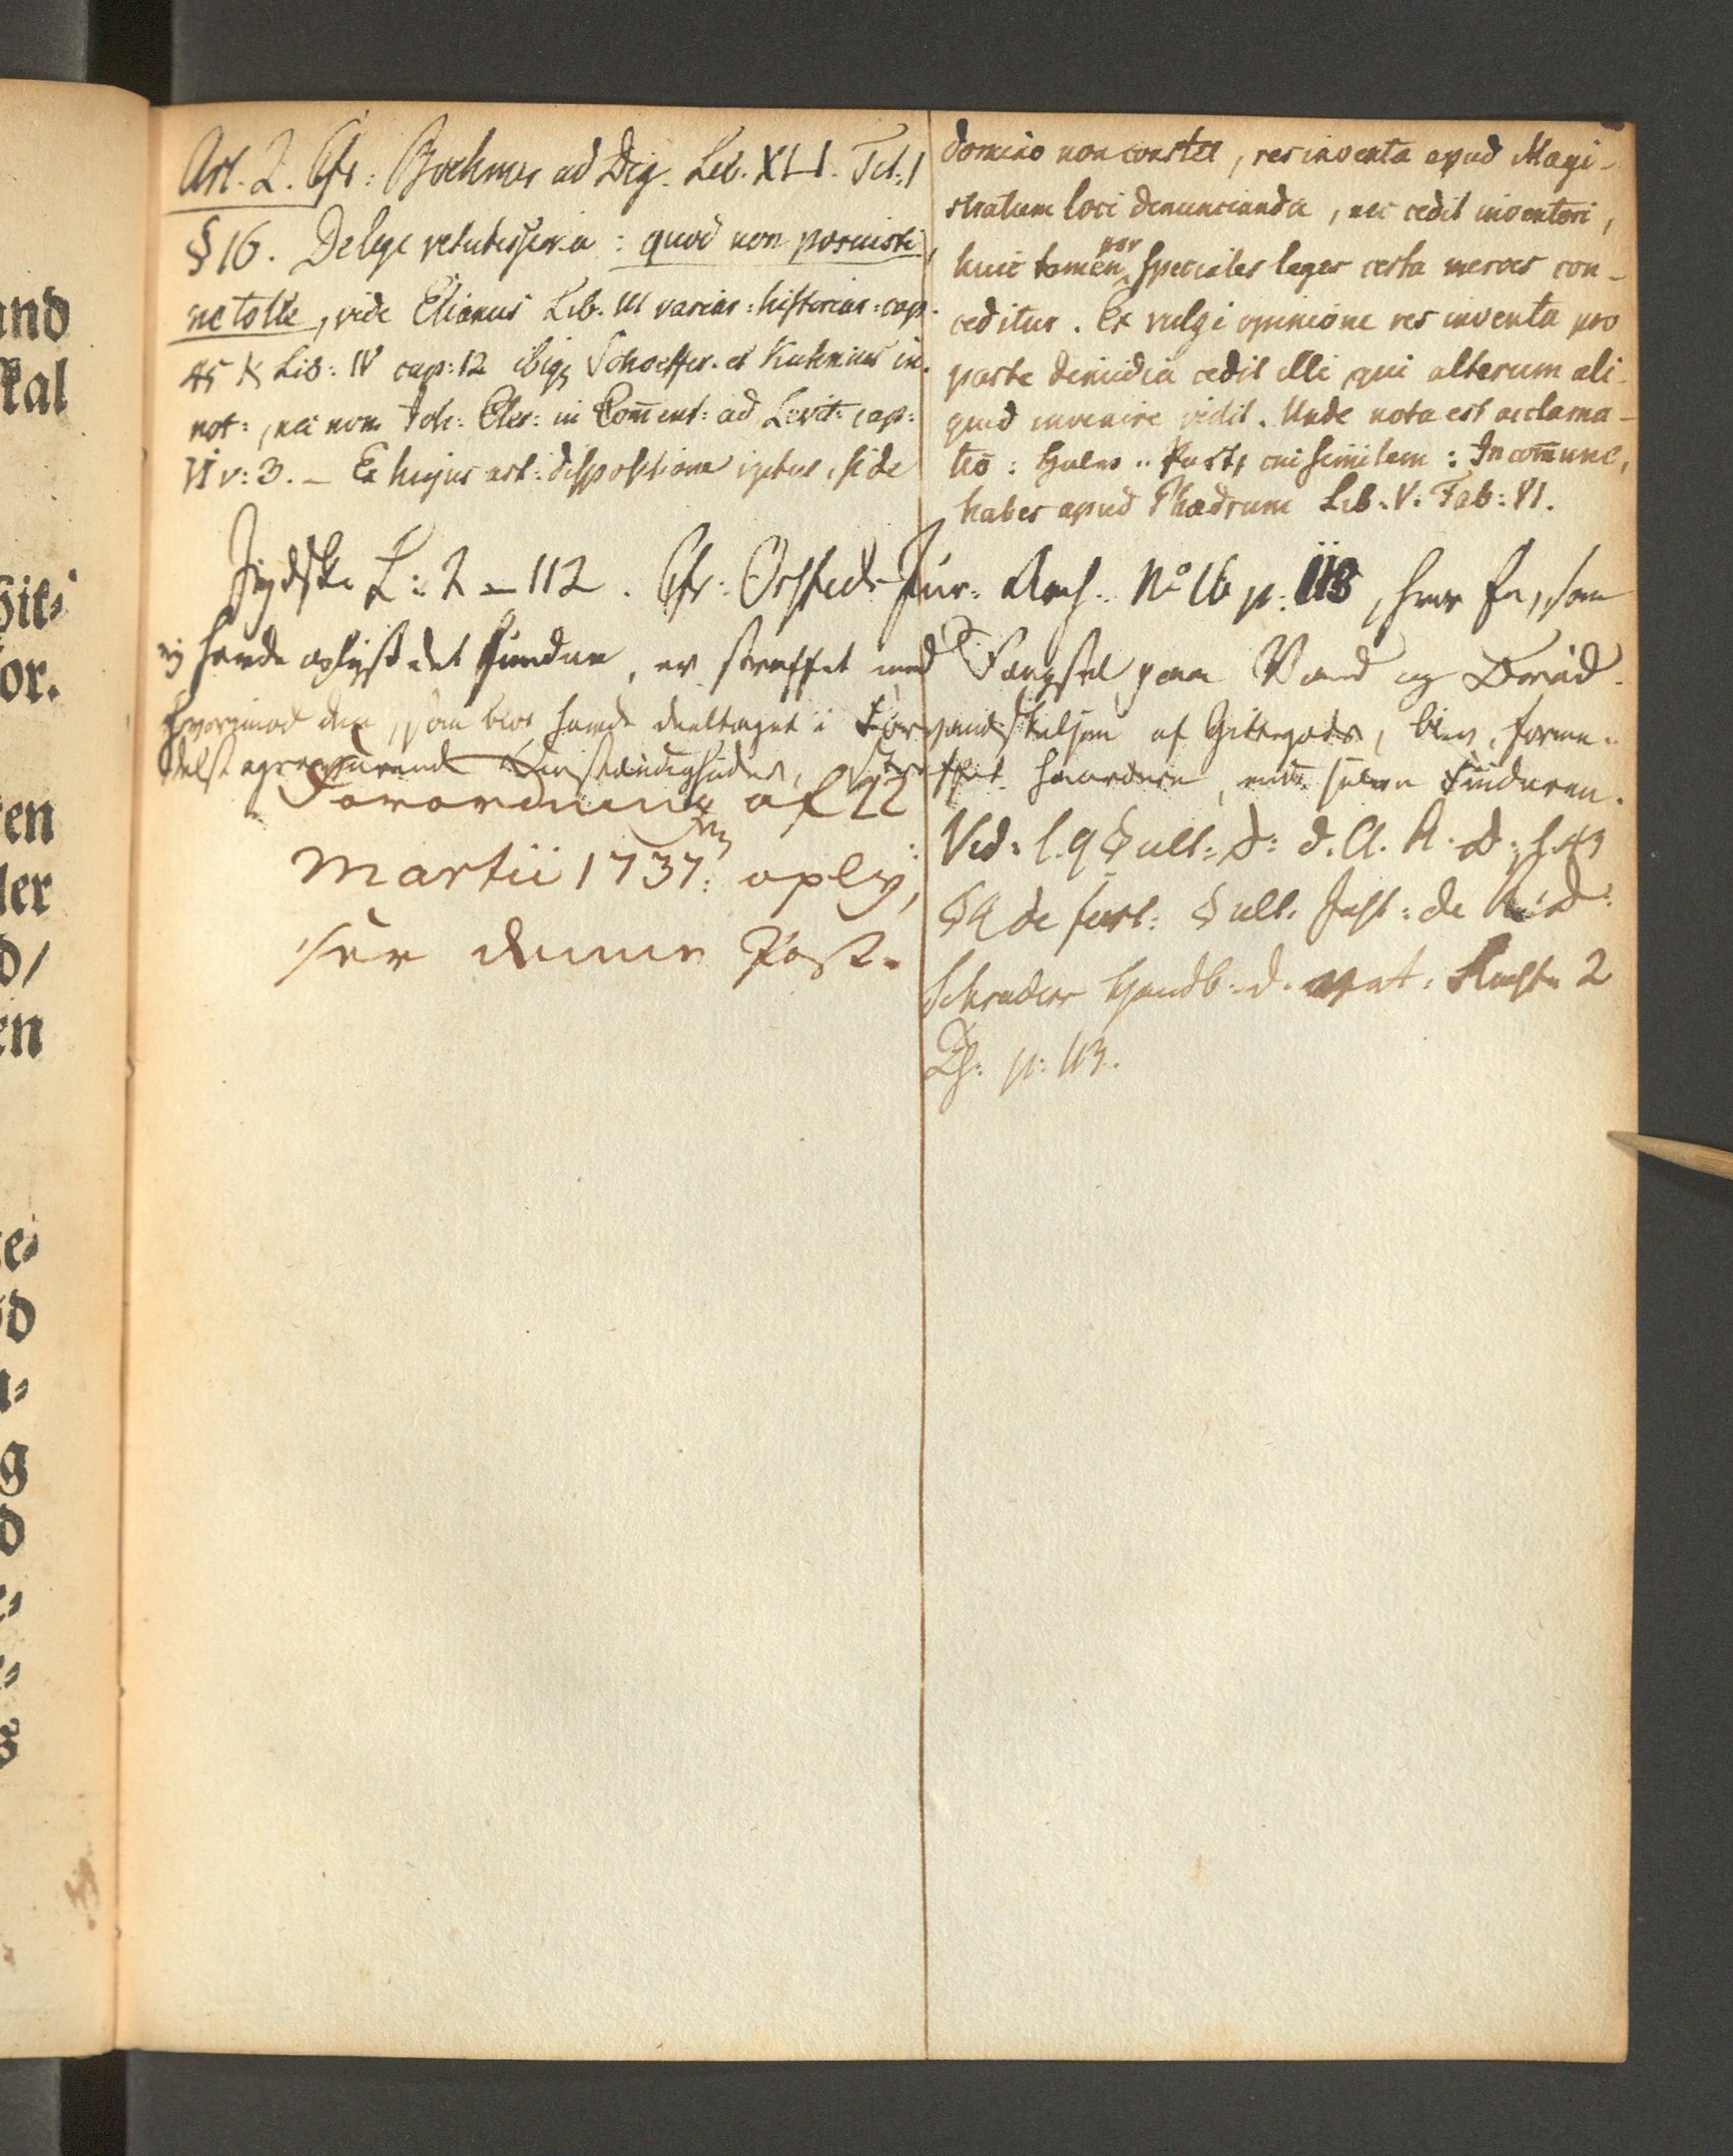 Art. 2. Cfr: Boehmer ad Dig. Lib. XLI. Tit: 1
§ 16. De lege vetutissima: quod non posuisti,
ne tolle, vide Elianus Lib. III varias: historias: cap.
45 & Lib: IV cap: 12 ibiq Schoeffer. et Kuhnius in.
not:, nec non Joh: Cler: in Com̄ent: ad Levit: cap:
VI v: 3. – Ex hujus art: dispositione igitur, si de
domino non constet, res inventa apud Magi-
stratum loci denuncianda, nec cedit inventori,
huic tamen per speciales leges certa merces con-
ceditur. Ex vulgi opinione res inventa pro
parte dimidia cedit illi qui alterum ali-
quid invenire vidit. Unde nota est acclama-
tio: Halv Part, cui similem: In com̄une,
habes apud Phædrum Lib: V. Fab: VI.
Jydske L: 2 – 112. Cfr: Ørsteds Jur: Arch. No 16 p: 113, hvor En, som
ej havde oplyst det Fundne, er straffet med Fængsel paa Vand og Brød.
hvorimod den, som blos havde deeltaget i Forvandskelsen af Hittegods, blev, forme-
delst agraverende Omstændigheder, straffet haardere, end selve Finderen.
Forordning af 22
Martii 1737: oply,
ser denne Post.
Vid. l. 9 § ult: D: d. A. R. D; l. 43
§ 4 de furt: § ult. Inst: de R: D:
Schraders Handb. d. Recht 2
Th: p: 113.
and
kal
Hit-
or.
en
ler
d/
en
e-
d
g
d